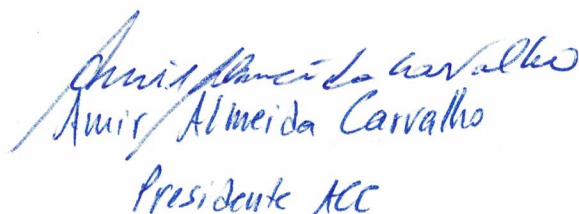 Amir Almeida Carvalho
Amir Almeida Carvalho
Presidente ACC